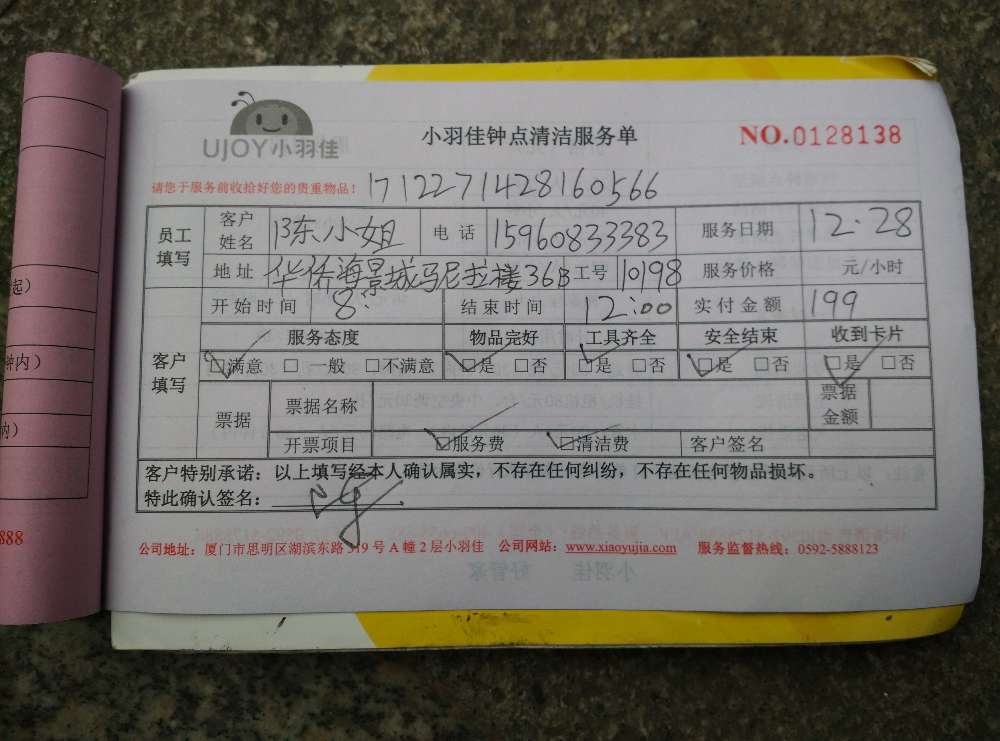 UJOY小羽佳
小羽佳钟点清洁服务单
NO.0128138
请您于服务前收拾好您的贵重物品！ 1712271428160566
员工填写 客户姓名 陈小姐 电话 15960833383 服务日期 12·28
地址 华侨海景城马尼拉楼36B 工号 10198 服务价格 元/小时
开始时间 8: 结束时间 12:00 实付金额 199
客户填写 服务态度 物品完好 工具齐全 安全结束 收到卡片
□满意 □一般 □不满意 □是 □否 □是 □否 □是 □否 □是 □否
票据 票据名称 票据金额
开票项目 □服务费 □清洁费 客户签名
客户特别承诺：以上填写经本人确认属实，不存在任何纠纷，不存在任何物品损坏。
特此确认签名：
公司地址：厦门市思明区湖滨东路319号A幢2层小羽佳 公司网站：www.xiaoyujia.com 服务监督热线：0592-5888123
起）
钟内）
内）
888